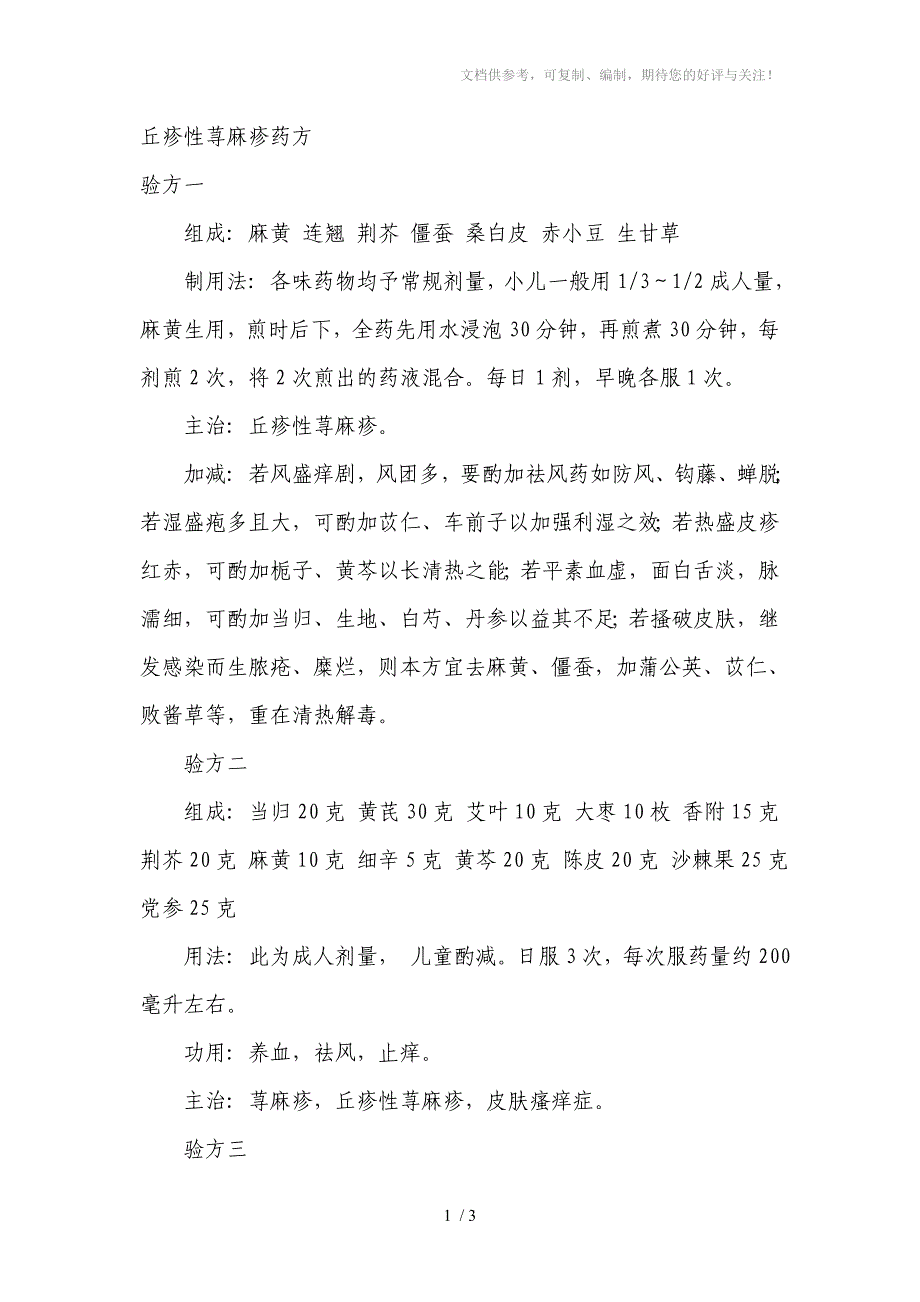 文档供参考，可复制、编制，期待您的好评与关注！
丘疹性荨麻疹药方
验方一
组成：麻黄 连翘 荆芥 僵蚕 桑白皮 赤小豆 生甘草
制用法：各味药物均予常规剂量，小儿一般用1/3～1/2成人量，
麻黄生用，煎时后下，全药先用水浸泡30分钟，再煎煮30分钟，每
剂煎2次，将2次煎出的药液混合。每日1剂，早晚各服1次。
主治：丘疹性荨麻疹。
加减：若风盛痒剧，风团多，要酌加祛风药如防风、钩藤、蝉脱；
若湿盛疱多且大，可酌加苡仁、车前子以加强利湿之效；若热盛皮疹
红赤，可酌加栀子、黄芩以长清热之能；若平素血虚，面白舌淡，脉
濡细，可酌加当归、生地、白芍、丹参以益其不足；若搔破皮肤，继
发感染而生脓疮、糜烂，则本方宜去麻黄、僵蚕，加蒲公英、苡仁、
败酱草等，重在清热解毒。
验方二
组成：当归20克 黄芪30克 艾叶10克 大枣10枚 香附15克
荆芥20克 麻黄10克 细辛5克 黄芩20克 陈皮20克 沙棘果25克
党参25克
用法：此为成人剂量， 儿童酌减。日服3次，每次服药量约200
毫升左右。
功用：养血，祛风，止痒。
主治：荨麻疹，丘疹性荨麻疹，皮肤瘙痒症。
验方三
1 / 3